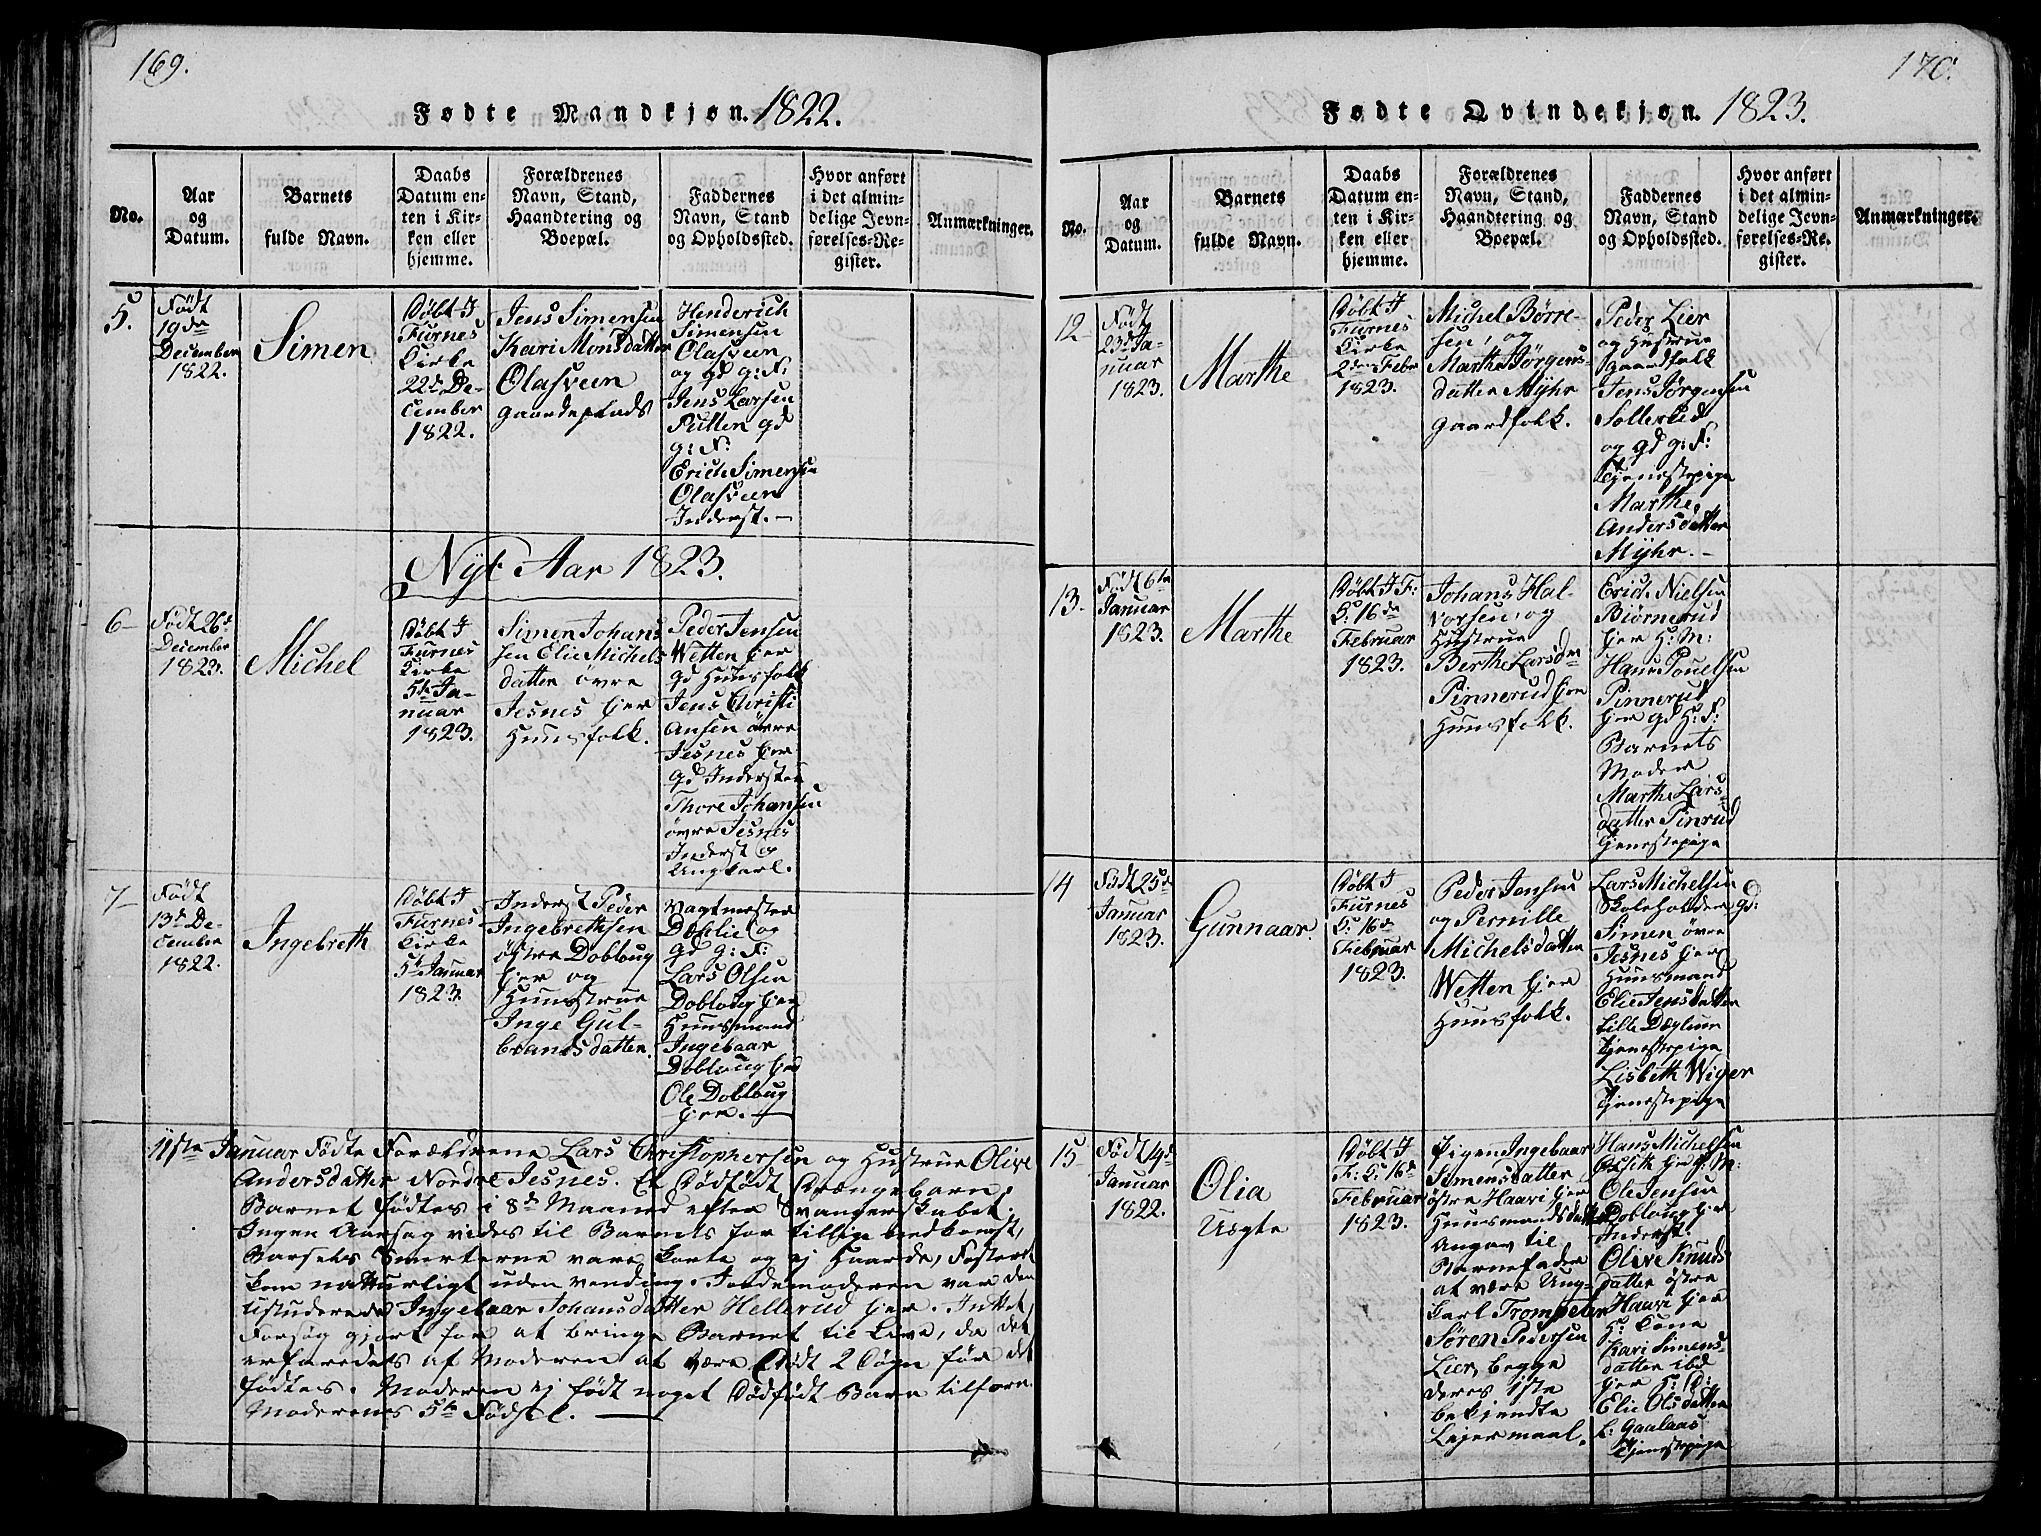 169.
Fødte Mandkjøn. 1822.
No.
Aar
og
Datum.
Barnets
fulde Navn.
Daabs
Datum en-
ten i Kir-
ken eller
hjemme.
Forældrenes
Navn, Stand,
Haandtering og
Boepæl.
Faddernes
Navn, Stand
og Opholdssted.
Hvor anført
i det almin-
delige Jevn-
førelses-Re-
gister.
Anmærkninger.
5.
Født
19de
December
1822.
Simen
Døbt I
Furnes
Kirke
22de De-
cember
1822.
Jens Simensen
Kari Monsdatter
Olasveen
gaardeplads
Henderich
Simensen
Olasveen
og gd g: F:
Jens Larsen
Putten gd
g: F:
Erich Simensen
Olasveen
Inderst. —
Nyt Aar 1823.
6
Født 26de
December
1823.
Michel
Døbt I
Furnes
Kirke
5te Ja-
nuar
1823.
Simen Johan
sen Elie Michels
datter øvre
Jesnes hjer
Huusfolk.
Peder Jensen
Wetten hjer
gd Huusfolk
Jens Christi
ansen øvre
Jesnes hjer
gd Inderster
Thore Johansen
øvre Jesnes
Inderst og
Ungkarl.
7
Født
13de De-
cember
1822.
Ingebreth
Døbt I
Furnes
Kirke
5te Januar
1823.
Inderst Peder
Ingebrethsen
østre Dobloug
hjer og
Huustrue
Inge Gul-
brandsdatter.
Vagtmester
Dæhlie og
gd g: F:
Lars Olsen
Dobloug hjer
Huusmand
Ingebaar
Dobloug hjer
Ole Dobloug
hjer. —
11fte Januar Fødte Forældrene Lars Christophersen og Hustrue Olive
Andersdatter Nordre Jesnes. Et Dødfødt Drængebarn.
Barnet fødtes i 8de Maaned efter Svangerskabet.
Ingen Aarsag vides til Barnets for tillige nedkomst,
Barsels Smerterne vare korte og ej Haarde, Fosteret
kom natturligt uden vending. Jordemoderen var den
ustuderede Ingebaar Johansdatter Hellerud hjer. Intet
Forsøg gjort for at bringe Barnet til Live, da det
erfaredes af Moderen at være Dødt 2 Døgn før det
fødtes. Moderen ej født noget Dødfødt Barn tilforn
Moderenes 5te Fødsel. —
170.
Fødte Qvindekjøn. 1823.
No.
Aar
og
Datum.
Barnets
fulde Navn.
Daabs
Datum en-
ten i Kir-
ken eller
hjemme.
Forældrenes
Navn, Stand,
Haandtering og
Boepæl.
Faddernes
Navn, Stand
og Opholdssted.
Hvor anført
i det almin-
delige Jevn-
førelses-Re-
gister.
Anmærkninger.
12
Født
23de Ja-
nuar
1823.
Marthe
Døbt I
Furnes
Kirke
2den Febr
1823.
Michel Børre-
sen, og
Marthe Jørgens-
datter Myhr
Gaardfolk.
Peder Lier
og Hustrue
Gaardfolk
Jens Jørgensen
Sollerud
og gd g: F:
Tjenestepige
Marthe
Andersdatter
Myhr. —
13.
Født 6te
Januar
1823.
Marthe
Døbt I F:
K: 16de
Februar
1823.
Johans Hal-
vorsen, og
Hustrue
Berthe Larsdtr
Pinnerud hjer
Huusfolk.
Erich Nielsen
Biørnerud
hjer H: M:
Hans Poulsen
Pinnerud
hjer gd H: F:
Barnets
Moder
Marthe Lars-
datter Pinrud
Tjenestepige
14
Født 25de
Januar
1823.
Gunnaar.
Døbt I
Furnes
K: 16de
Februar
1823.
Peder Jensen
og Pernille
Michelsdatter
Wetten hjer
Huusfolk.
Lars Michelsen
Skoleholder gd:
Simen øvre
Jesnes hjer
Huusmand
Elie Jensdatter
Lille Dæhlum
Tjenestepige
Lisbeth Wiger
Tjenestepige
15
Født 19de
Januar
1822.
Olia
Uægte
Døbt I
F: K: 16de
Februar
1823.
Pigen Ingebaar
Simensdatter
østre Haavi hjer
Huusmandsdatter
Angav til
Barnefader
at være Ung-
karl Trompeter
Søren Pedersen
Lier, begge
deres 1ste
bekjendte
Lejermaal.
Hans Michelsen
hjer H: M:
Ole Jensen
Dobloug hjer
Inderst.
Olive Knuds
datter østre
Haavi hjer
H: Kone
Kari Simens-
datter ibd
hjer H: D:
Elie Olsdatter
L: Gaalaas
Tjenestepige